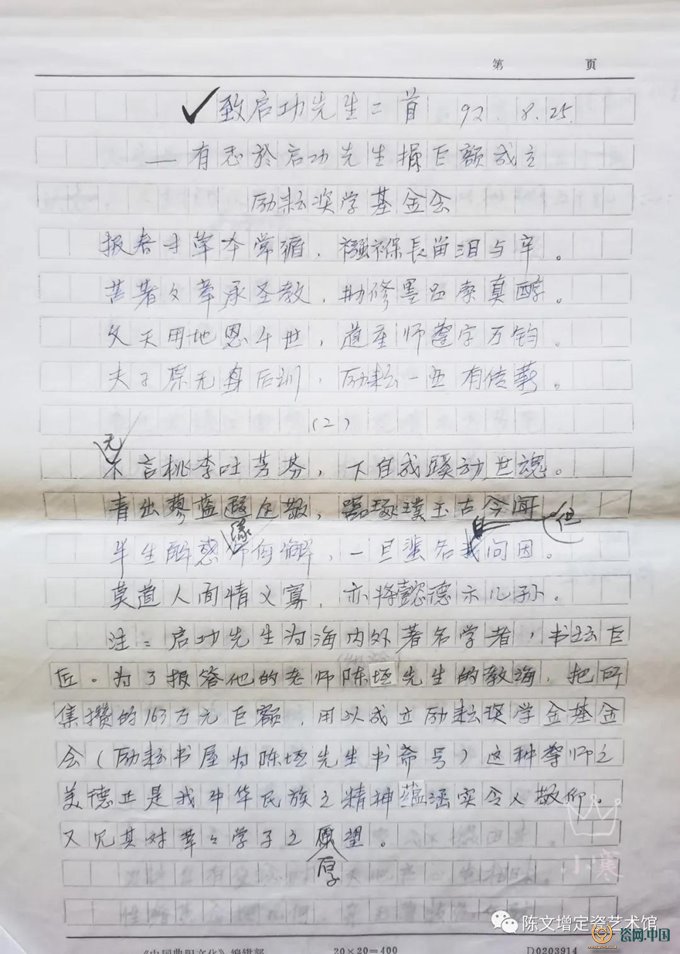 第 页
✓致启功先生二首 92.8.25.
——有志於启功先生捐巨额成立
励耘奖学基金会
报春寸草本常循，襁褓长留泪与辛。
苦著文章承圣教，勤修墨吕索真醇。
父天用地恩斗世，道座师尊字万钧。
夫子原无身后训，励耘一亚有传薪。
（2）
无
不言桃李吐芳芬，下自成蹊动世魂。
青出蓼蓝 敬，器琢璞玉古今闻 但
半生解惑 师何解，一旦 名我问因。
莫道人间情义寡，亦将懿德示儿孙。
注：启功先生为海内外著名学者，书坛巨
匠。为了报答他的老师陈垣先生的教诲，把所
集攒的163万元巨额，用以成立励耘奖学金基金
会（励耘书屋为陈垣先生书斋号）这种尊师之
美德正是我中华民族之精神蕴涵实令人敬仰。
又见其对莘々学子之愿望。
厚
小寒
《中国典职文化》编辑部 20×20=400 D0203914
陈文增定瓷艺术馆
瓷网.中国